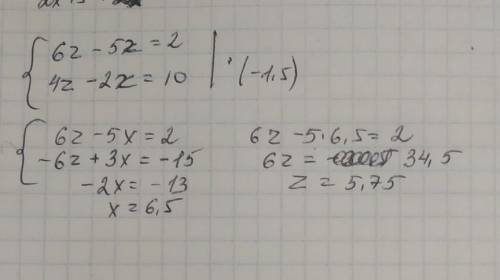 { 6z - 5x = 2
4z - 2x = 10 | · (-1,5)
{ 6z - 5x = 2
-6z + 3x = -15
-2x = -13
x = 6,5
6z - 5 · 6,5 = 2
6z = 34,5
z = 5,75